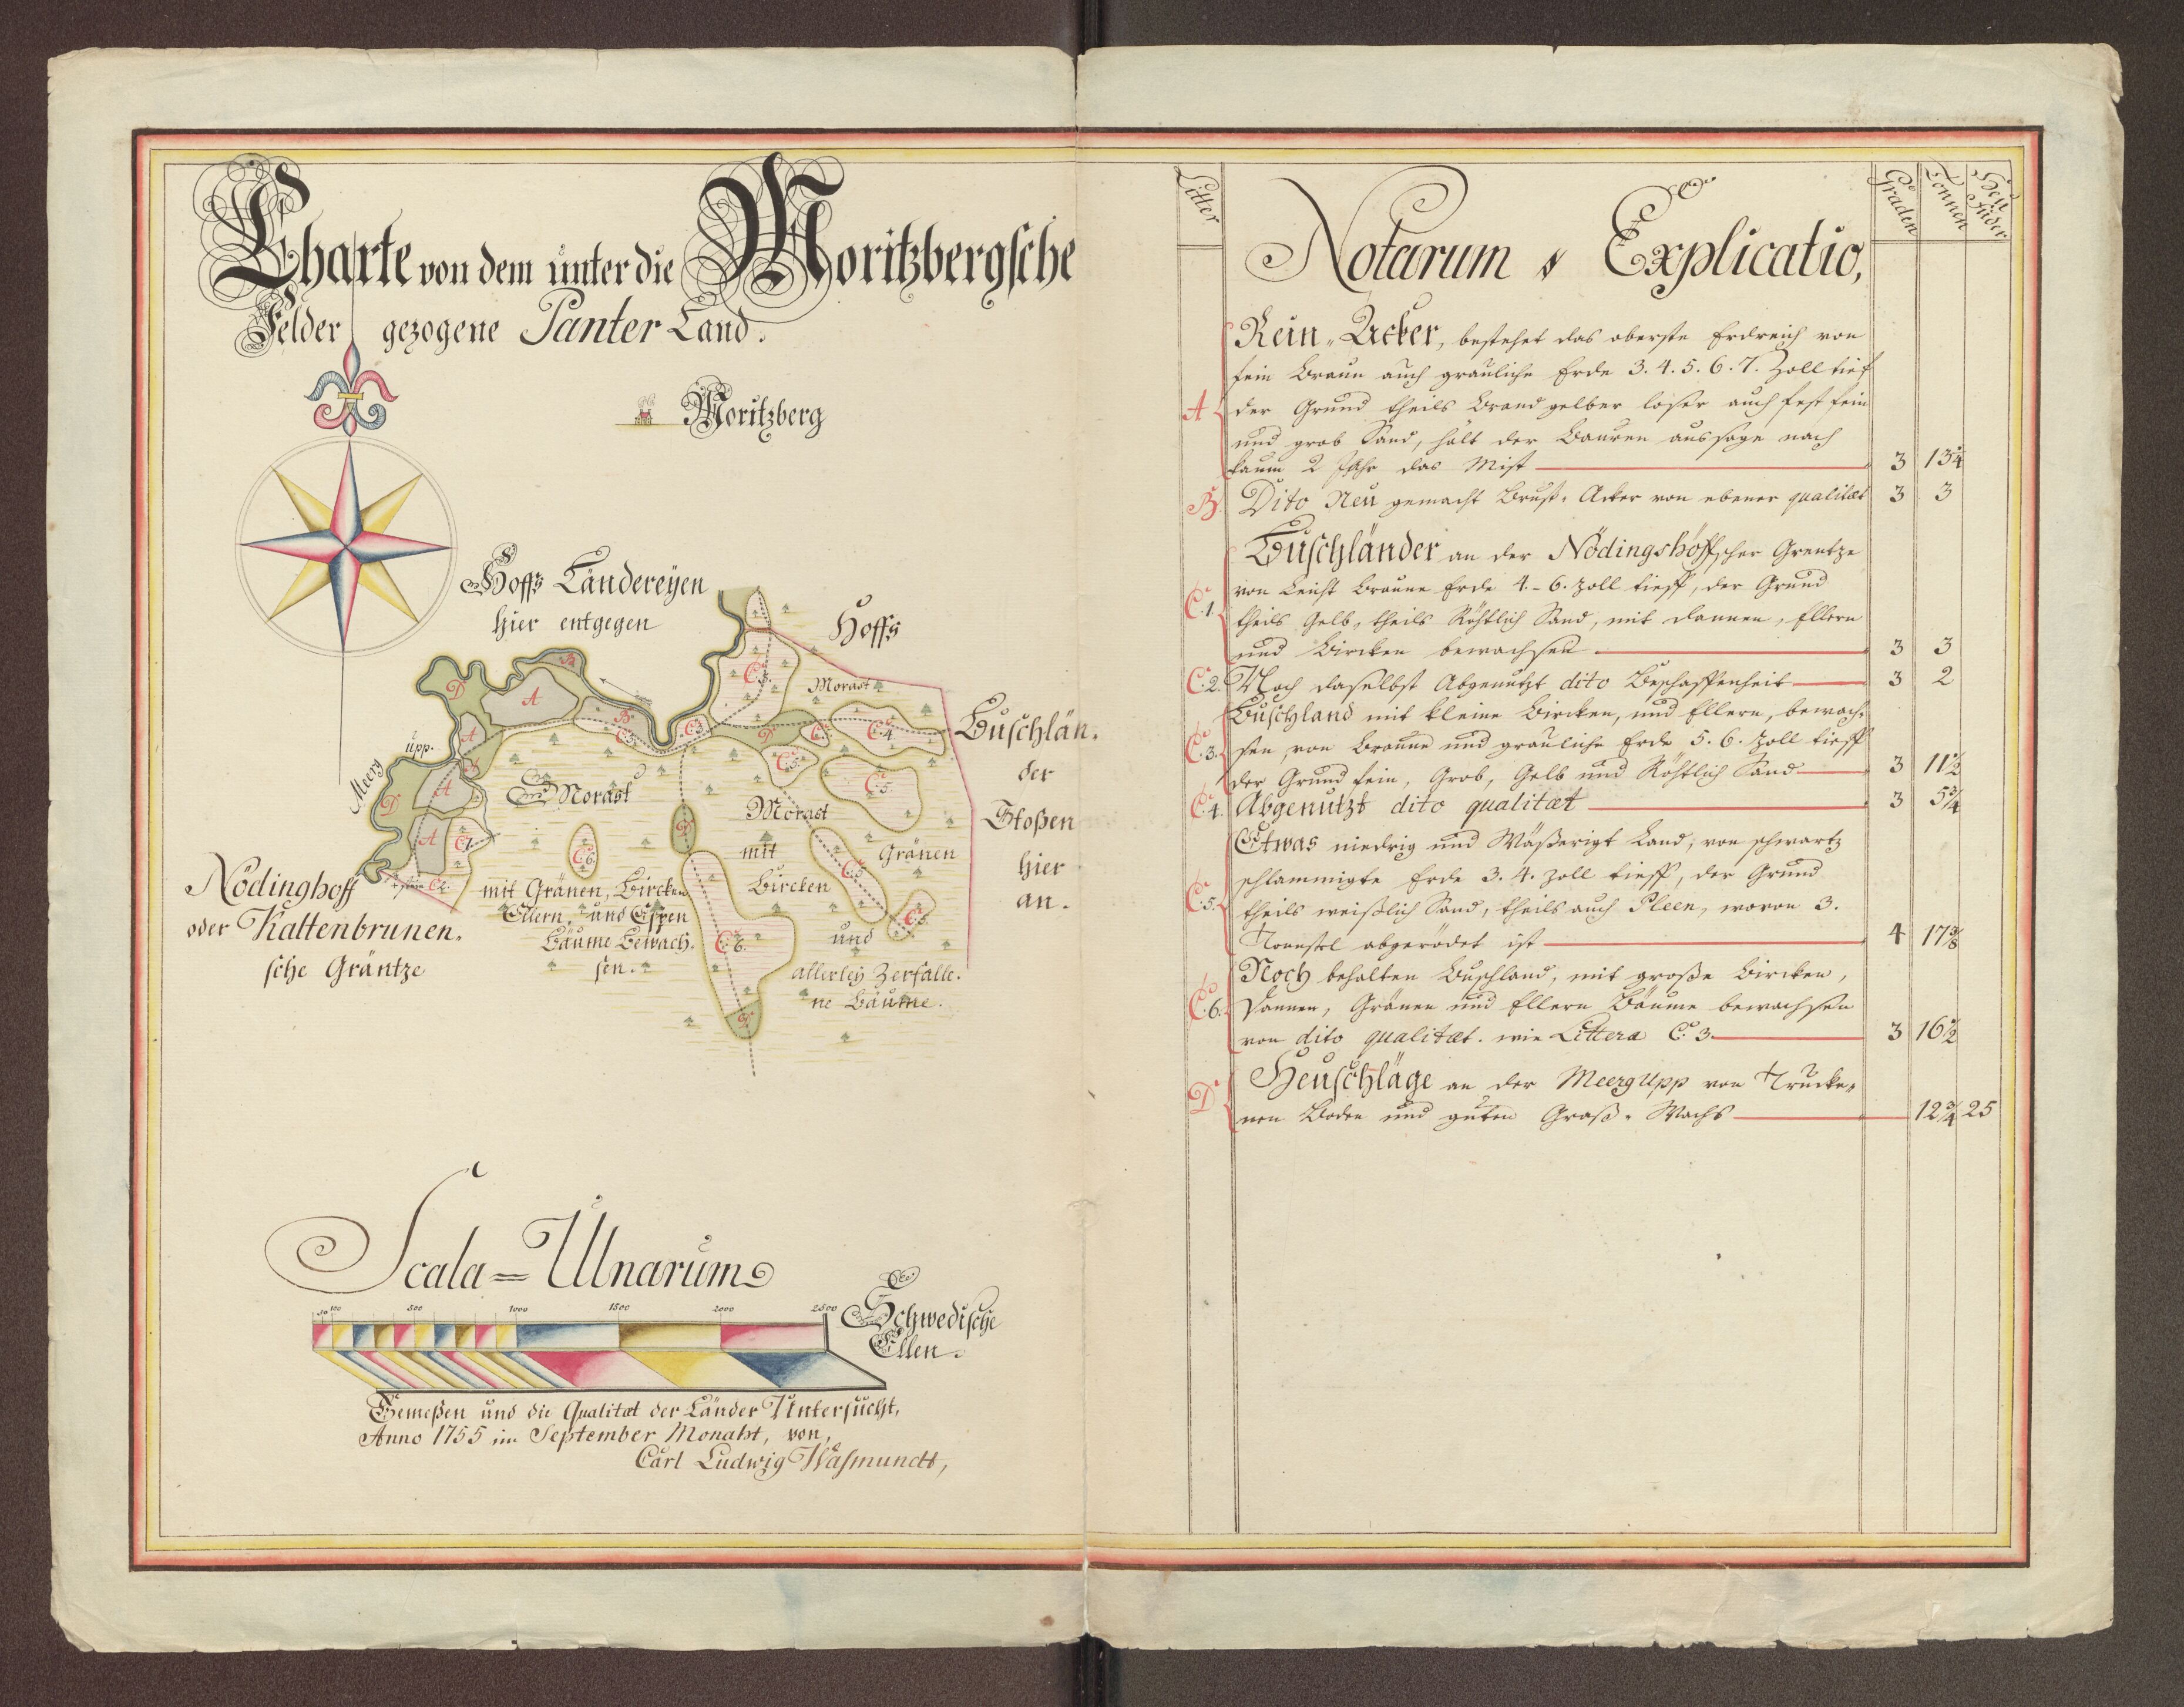 Charte von dem unter die Moritzbergsche
Felder gezogene Panter Land.
Moritzberg
Hoffs Ländereÿen
hier entgegen
Hoffs
Buschlän-
der
Stoßen
hier
an.
Meerg
upp.
Morast
Morast
Morast
mit Gränen, Bircken
Ellern, und Espen
Bäume bewach-
sen.
mit
Gränen
Bircken
und
allerleÿ Zerfalle-
ne Bäume.
Nödinghoff
oder Kattenbrunen-
sche Gräntze
A
A
A
A
B
B
C.1.
C.2.
C.3.
C.3.
C.3.
C.4.
C.5.
C.5.
C.5.
C.5.
C.6.
C.6.
D
D
D
D
D
Scala = Ulnarum
50 100 500 1000 1500 2000 2500
Schwedische
Ellen.
Gemeßen und die Qualitæt der Länder Untersucht,
Anno 1755 im September Monaht, von,
Carl Ludwig Wasmundt,
Litter
Notarum Explicatio,
Graden
Tonnen
Heu
Füder
Rein-Acker, bestehet das oberste Erdreich von
fein Braun auch grauliche Erde 3. 4. 5. 6. 7. Zoll tief
A der Grund theils Brand gelber loser auch fest fein
und grob Sand, hält der Bauren aussage nach
kaum 2 Jahr das Mist 3 13¼
B. Dito Neu gemacht Brust-Acker von ebener qualitæt 3 3
Buschländer an der Nödingshöffscher Grentze
C.1. von Leicht Braune Erde 4.-6. zoll tieff, der Grund
theils Gelb, theils Röhtlich Sand, mit Dannen, Ellern
und Bircken bewachsen 3 3
C.2. Noch daselbst Abgenutzt dito Beschaffenheit 3 2
Buschland mit kleine Bircken, und Ellern, bewach-
C.3. sen, von Braune und grauliche Erde 5. 6. zoll tieff
der Grund fein, Grob, Gelb und Röhtlich Sand 3 11½
C.4. Abgenutzt dito qualitæt 3 5¾
Etwas niedrig und Wäßerigt Land, von schwartz
schlammigte Erde 3. 4. zoll tieff, der Grund
C.5. theils weißlich Sand, theils auch Pleen, wovon 3.
Tonnstel abgerödet ist 4 17⅜
Noch behalten Buschland, mit große Bircken,
C.6. Dannen, Gränen und Ellern Bäume bewachsen
von dito qualitæt. wie Littera C. 3. 3 16½
Heuschläge an der Meergupp von Trucke-
D nen Boden und guten Graß-Wachs 12¾ 25